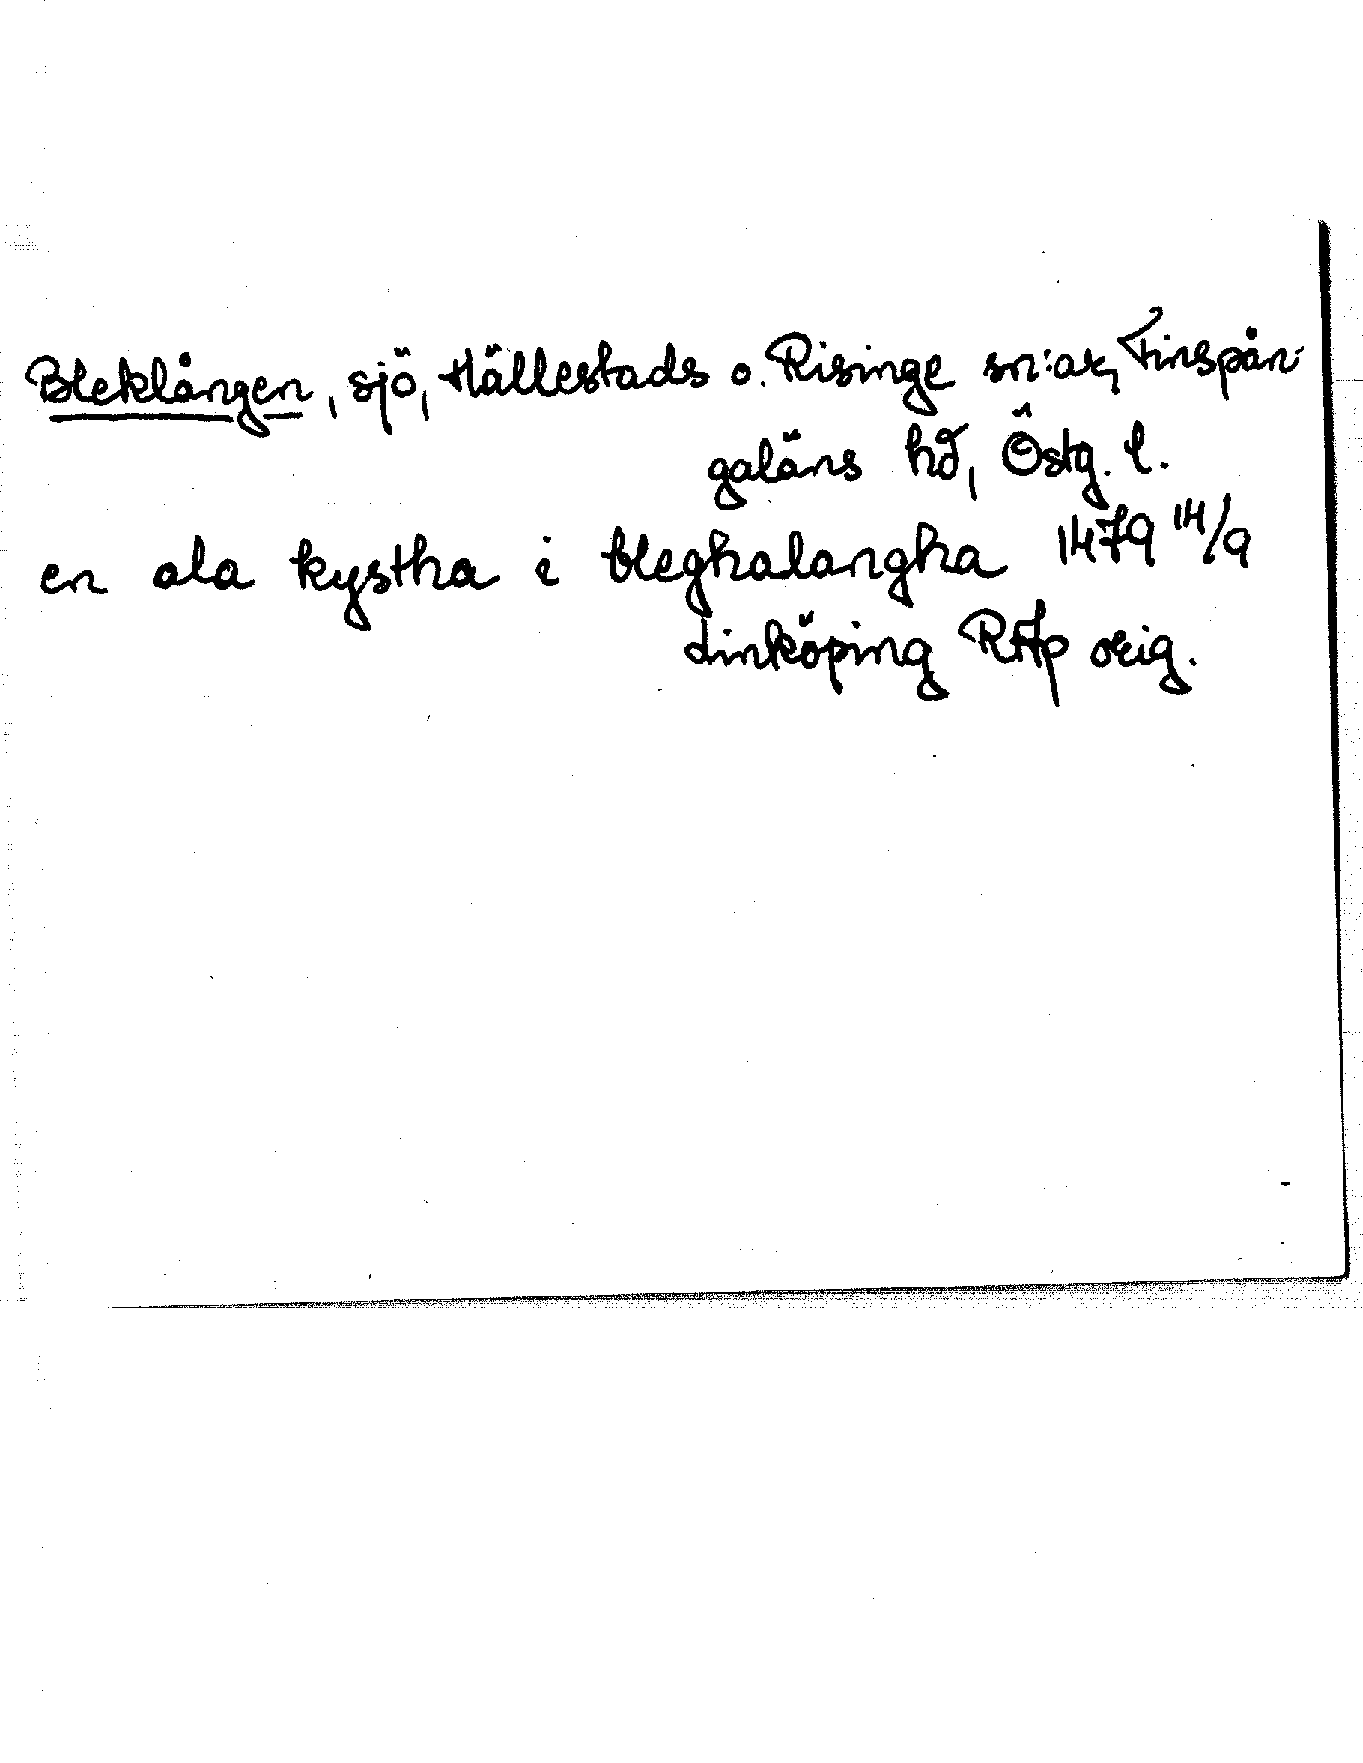 Bleklången, sjö, Hällestads o. Risinge sn:ar, Finspån-
galäns hd, Östg. l.
en ala kystha i bleghalangha 1479 14/9
Linköping RAp orig.